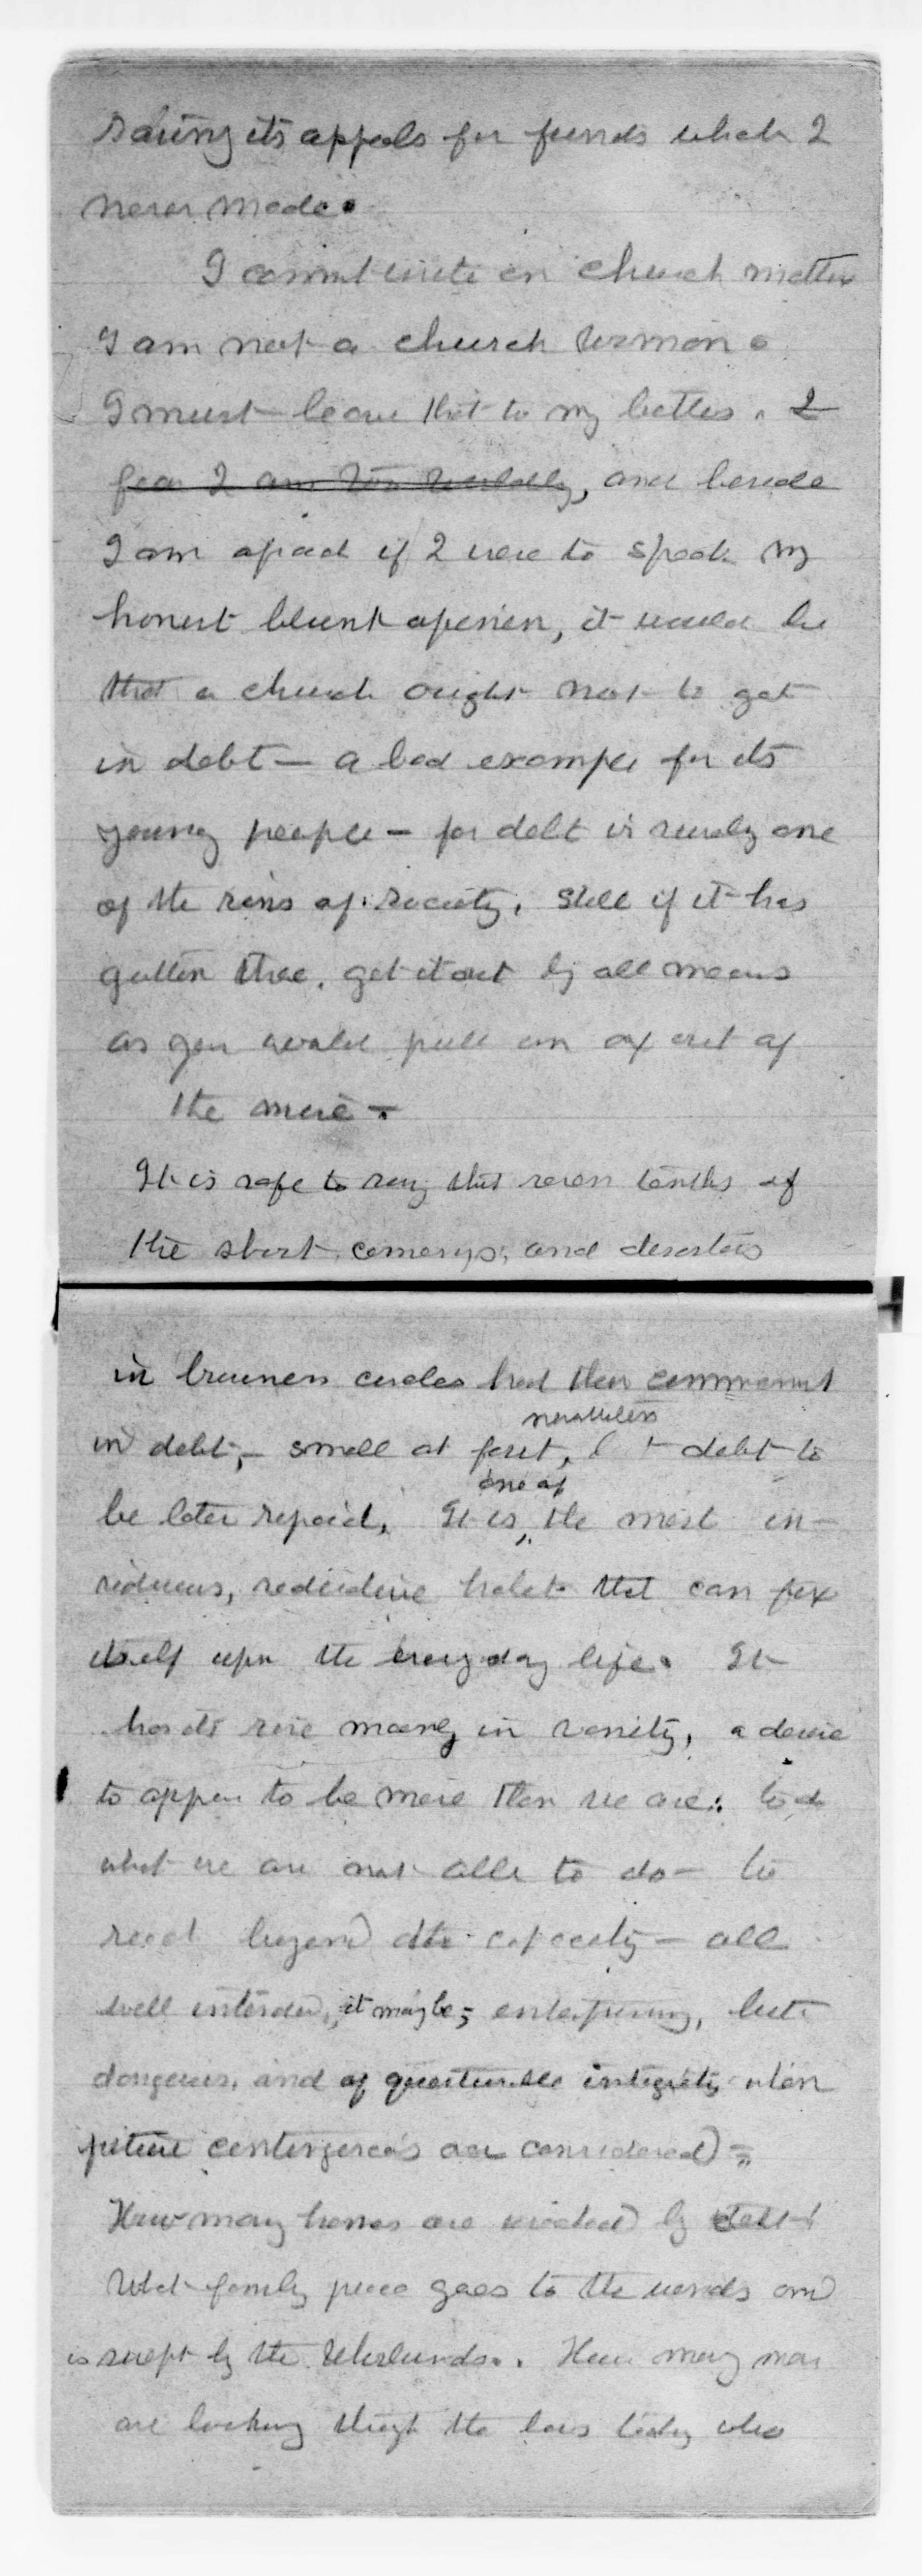 during its appeals for funds which I
never made.
I cannot write on church matters
I am not a church woman.
I must leave that to my betters. I
fear I am too worldly, and beside
I am afraid if I were to speak my
honest blunt opinion, it would be
that a church ought not to get
in debt — a bad example for its
young people — for debt is surely one
of the sins of society. Still if it has
gotten there, get it out by all means
as you would pull an ox out of
the mire —
It is safe to say that seven tenths of
the short comings, and disasters
in business circles had their commencement
in debt, — small at first, nevertheless debt to
be later repaid. It is one of the most in-
siduous, seductive habits that can fix
itself upon the everyday life. It
has its rise mainly in vanity, a desire
to appear to be more than we are: to do
what we are not able to do — to
reach beyond our capacity — all
well intended, it may be, enterprising, but
dangerous, and of questionable integrity when
future contingencies are considered —
How many homes are wrecked by debt!
What family peace goes to the winds and
is swept by the whirlwinds. How many men
are looking through the bars today who